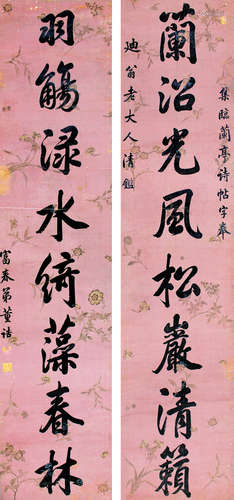 集臨蘭亭诗帖字奉
蘭沼光風松巖清籟
迪翁老大人清鑑
羽觴渌水綺藻春林
富春弟董诰